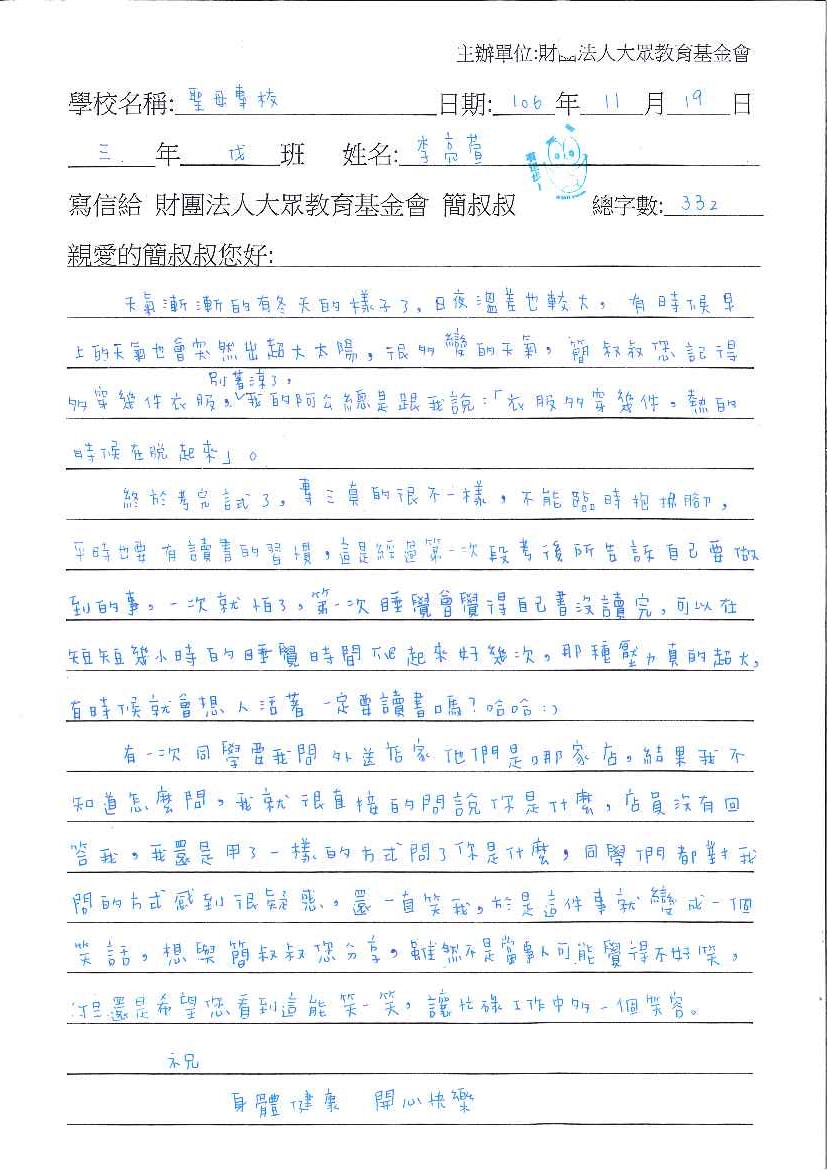 主辦單位:財團法人大眾教育基金會
學校名稱: 聖母專校 日期: 106 年 11 月 19 日
三 年 戊 班 姓名: 李亮萱
寫信給 財團法人大眾教育基金會 簡叔叔 總字數: 332
親愛的簡叔叔您好:
天氣漸漸的有冬天的樣子了,日夜溫差也較大,有時候早
上的天氣也會突然出超大太陽,很多變的天氣,簡叔叔您記得
別著涼了,
多穿幾件衣服。我的阿公總是跟我說:「衣服多穿幾件,熱的
時候在脫起來」。
終於考完試了,專三真的很不一樣,不能臨時抱佛腳,
平時也要有讀書的習慣,這是經過第一次段考後所告訴自己要做
到的事,一次就怕了,第一次睡覺會覺得自己書沒讀完,可以在
短短幾小時的睡覺時間爬起來好幾次,那種壓力真的超大,
有時候就會想人活著一定要讀書嗎?哈哈:)
有一次同學要我問外送店家他們是哪家店,結果我不
知道怎麼問,我就很直接的問說你是什麼,店員沒有回
答我,我還是用了一樣的方式問了你是什麼,同學們都對我
問的方式感到很疑惑,還一直笑我,於是這件事就變成一個
笑話,想與簡叔叔您分享,雖然不是當事人可能覺得不好笑,
但還是希望您看到這能笑一笑,讓忙碌工作中多一個笑容。
祝
身體健康 開心快樂